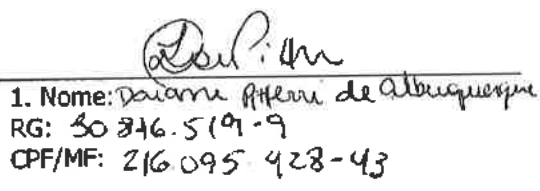 1. Nome: Daiane de Albuquerque
RG: 30 346.519-9
CPF/MF: 216.095 428-43